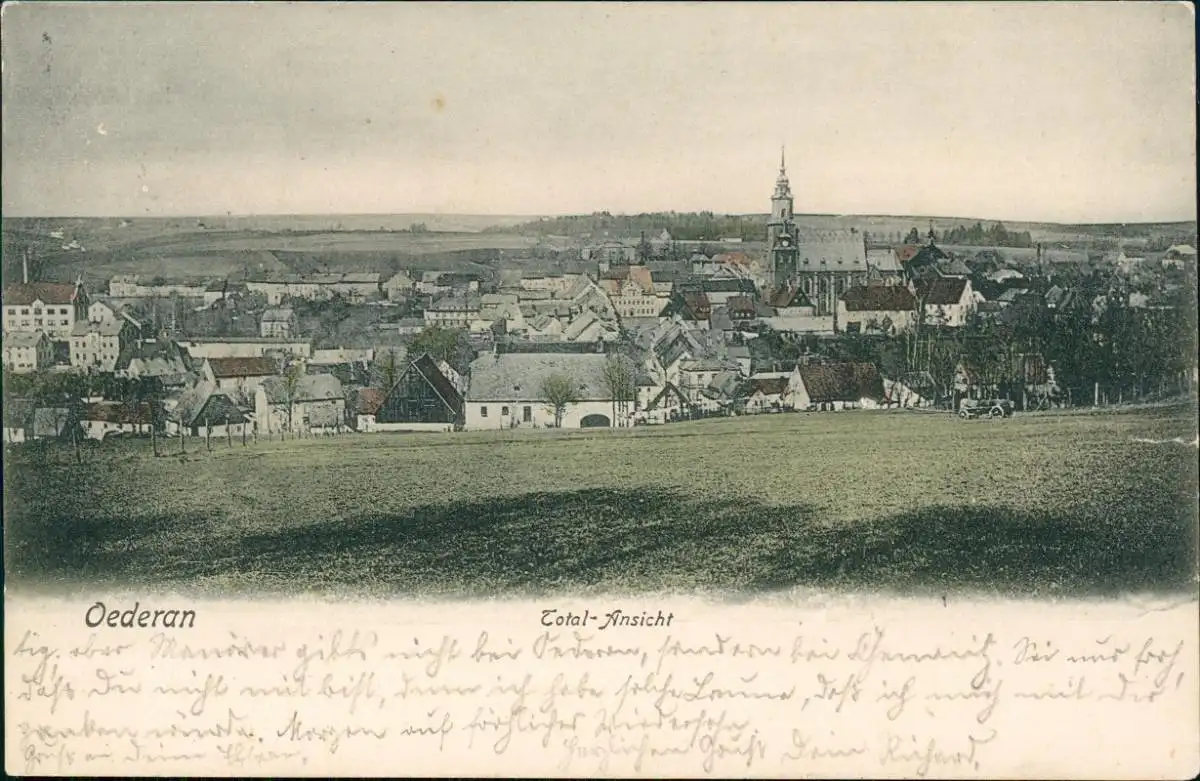 Oederan
Total-Ansicht
tig. aber Manöver gibts nicht bei Oederan, sondern bei Chemnitz. Sei nur froh,
daß Du nicht mit bist, denn ich habe solche Laune, daß ich mich mit Dir
zanken würde. Morgen auf fröhliches Wiedersehn.
Gruß an Deine Eltern. Herzlichen Gruß Dein Richard.